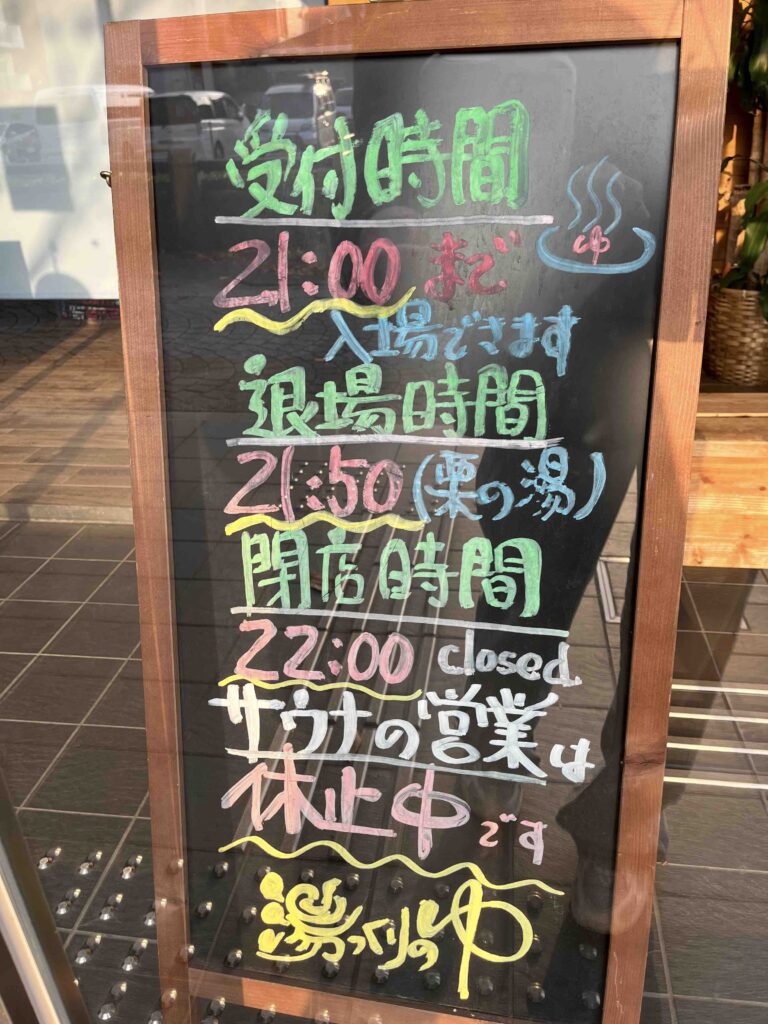 受付時間
ゆ
21:00 まで
入場できます
退場時間
21:50 (栗の湯)
閉店時間
22:00 closed.
サウナの営業は
休止中です
湯っくりのゆ